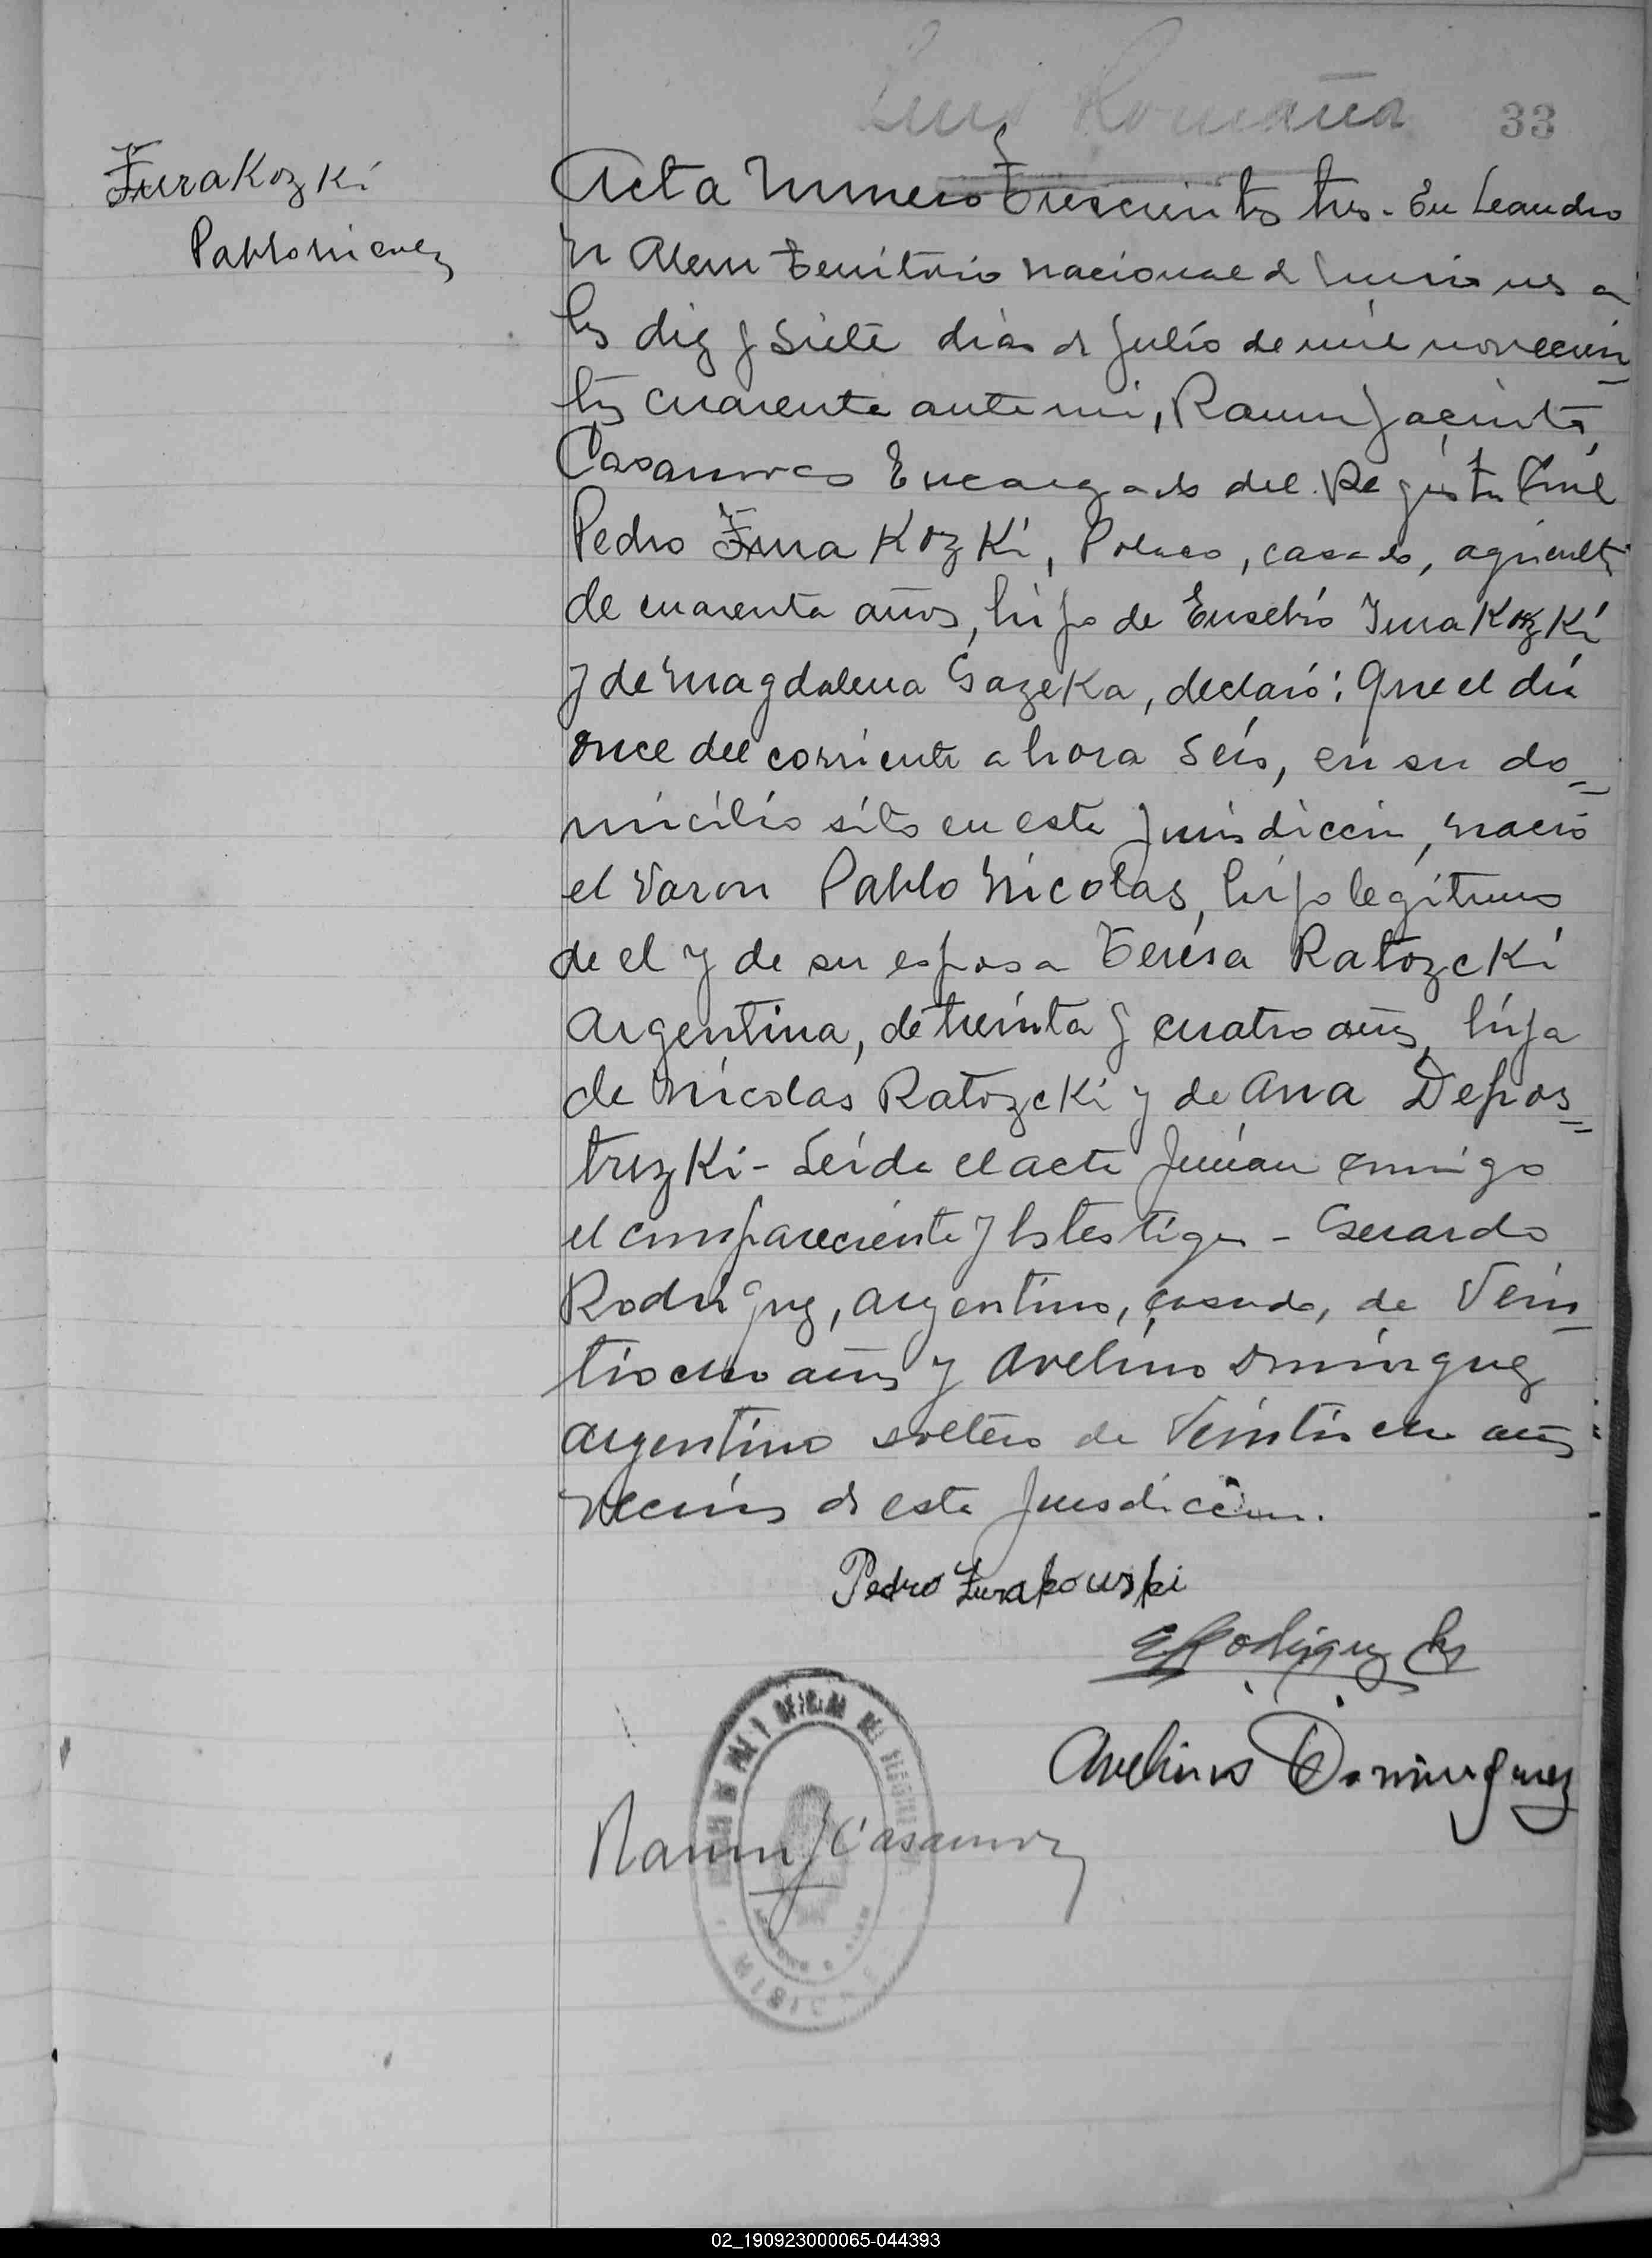 33
Zurakozki
Pablo Nicolas
Acta Numero Trescientos tres. En Leandro
N Alem Territorio nacional de Misiones a
los diez y siete dias de Julio de mil novecien_
tos cuarenta ante mi, Ramon Jacinto
Casanovas Encargado del Registro Civil
Pedro Zurakozki, Polaco, casado, agricultor
de cuarenta años, hijo de Eusebio Zurakozki
y de Magdalena Gazeka, declaró: Que el dia
once del corriente a hora seis, en su do=
micilio sito en esta Jurisdiccion, nació
el varon Pablo Nicolas, hijo legitimo
de el y de su esposa Teresa Ratozcki
Argentina, de treinta y cuatro años, hija
de Nicolas Ratozcki y de Ana Depos=
trezki - Leida el acta firman conmigo
el compareciente y los testigos - Gerardo
Rodriguez, argentino, casado, de Vein_
tiocho años y Avelino Dominguez
argentino soltero de Veintiocho años
vecinos de esta Jurisdiccion.
Pedro Zurakowski
Rodriguez
Avelino Dominguez
Ramon J Casanovas
02_190923000065-044393